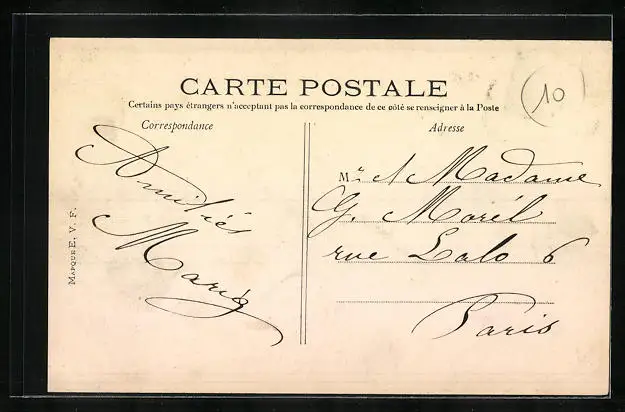 CARTE POSTALE
10
Certains pays étrangers n'acceptant pas la correspondance de ce côté se renseigner à la Poste
Correspondance
Amitiés
Marié
MARQUE E. V. F.
Adresse
Mr & Madame
G. Morél
rue Lalo 6
Paris